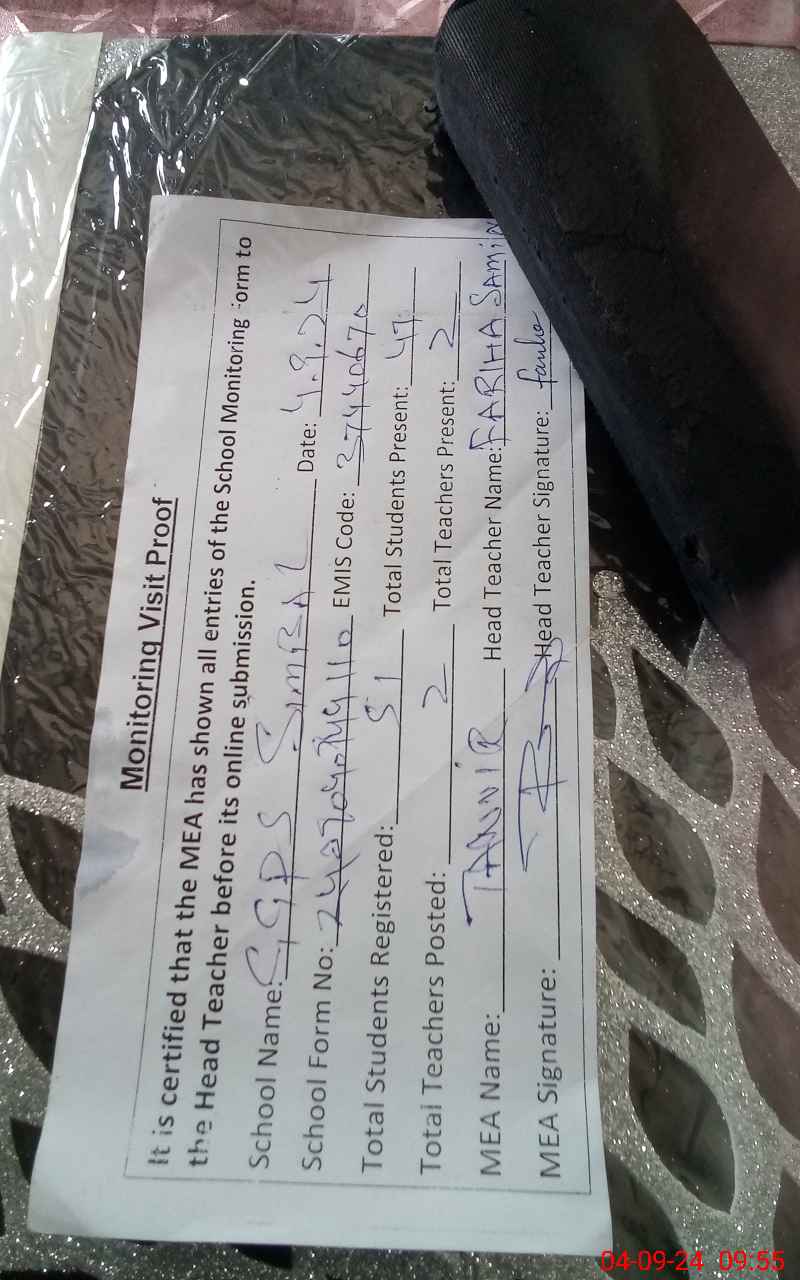 Monitoring Visit Proof
It is certified that the MEA has shown all entries of the School Monitoring Form to
the Head Teacher before its online submission.
School Name: GGPS SIMBAL Date: 4.9.24
School Form No: EMIS Code: 37440670
Total Students Registered: 51 Total Students Present: 47
Total Teachers Posted: 2 Total Teachers Present: 2
MEA Name: TANVIR Head Teacher Name: FARIHA SAMIN
MEA Signature: Head Teacher Signature: Fariha
04-09-24 09:55